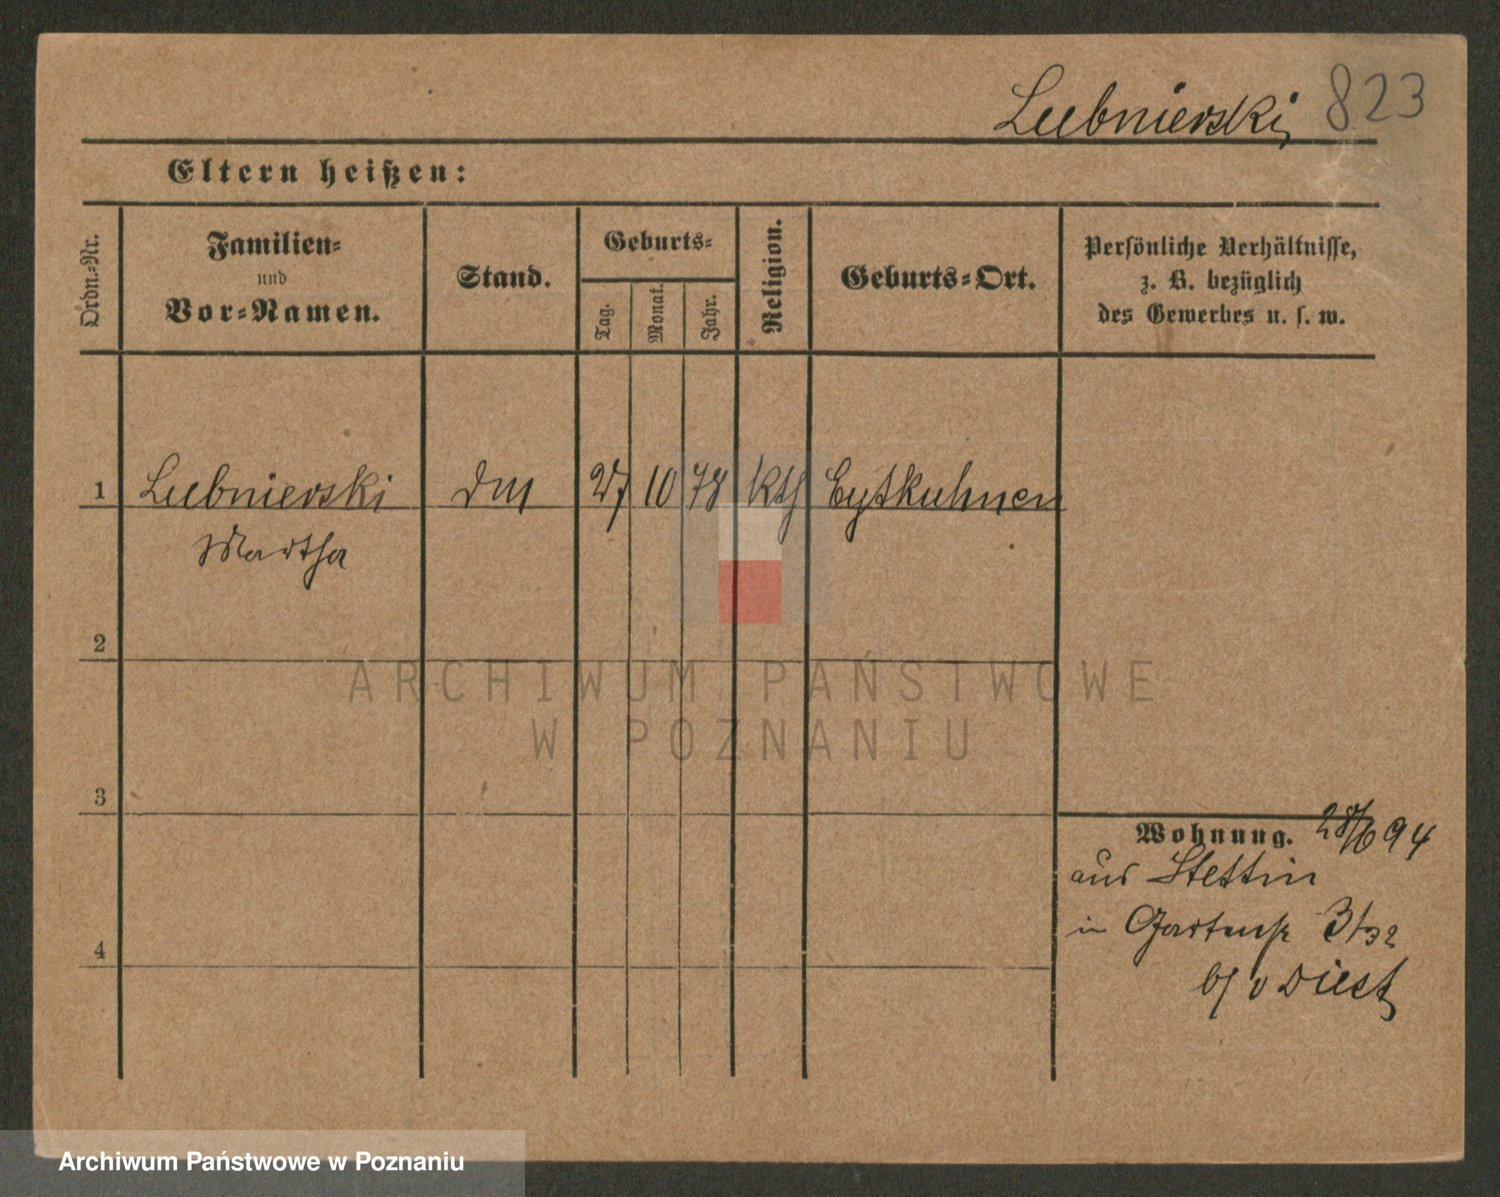 Lubnierski
823
Eltern heißen:
Ordn.=Nr.
Familien=
und
Vor=Namen.
Stand.
Geburts=
Tag.
Monat.
Jahr.
Religion.
Geburts=Ort.
Persönliche Verhältnisse,
z. B. bezüglich
des Gewerbes u. s. w.
1 Lubnierski 27 10 78 kth Eytkuhnen
Martha
2
3
4
Wohnung. 28/6 94
aus Stettin
in Gartenstr 3/32
b/ v Diest
ARCHIWUM PAŃSTWOWE
W POZNANIU
Archiwum Państwowe w Poznaniu